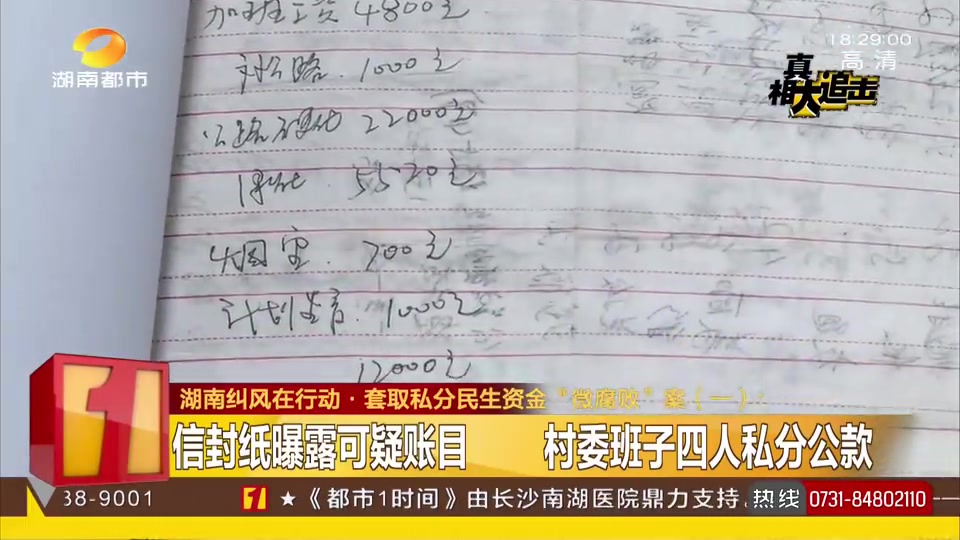 加班工资 4800元
18:29:00
高清
湖南都市
真相大追击
1000元
22000元
5570元
700元
计划生育. 1000元
12000元
湖南纠风在行动·套取私分民生资金“微腐败”案(一):
信封纸曝露可疑账目 村委班子四人私分公款
38-9001
★《都市1时间》由长沙南湖医院鼎力支持
热线 0731-84802110